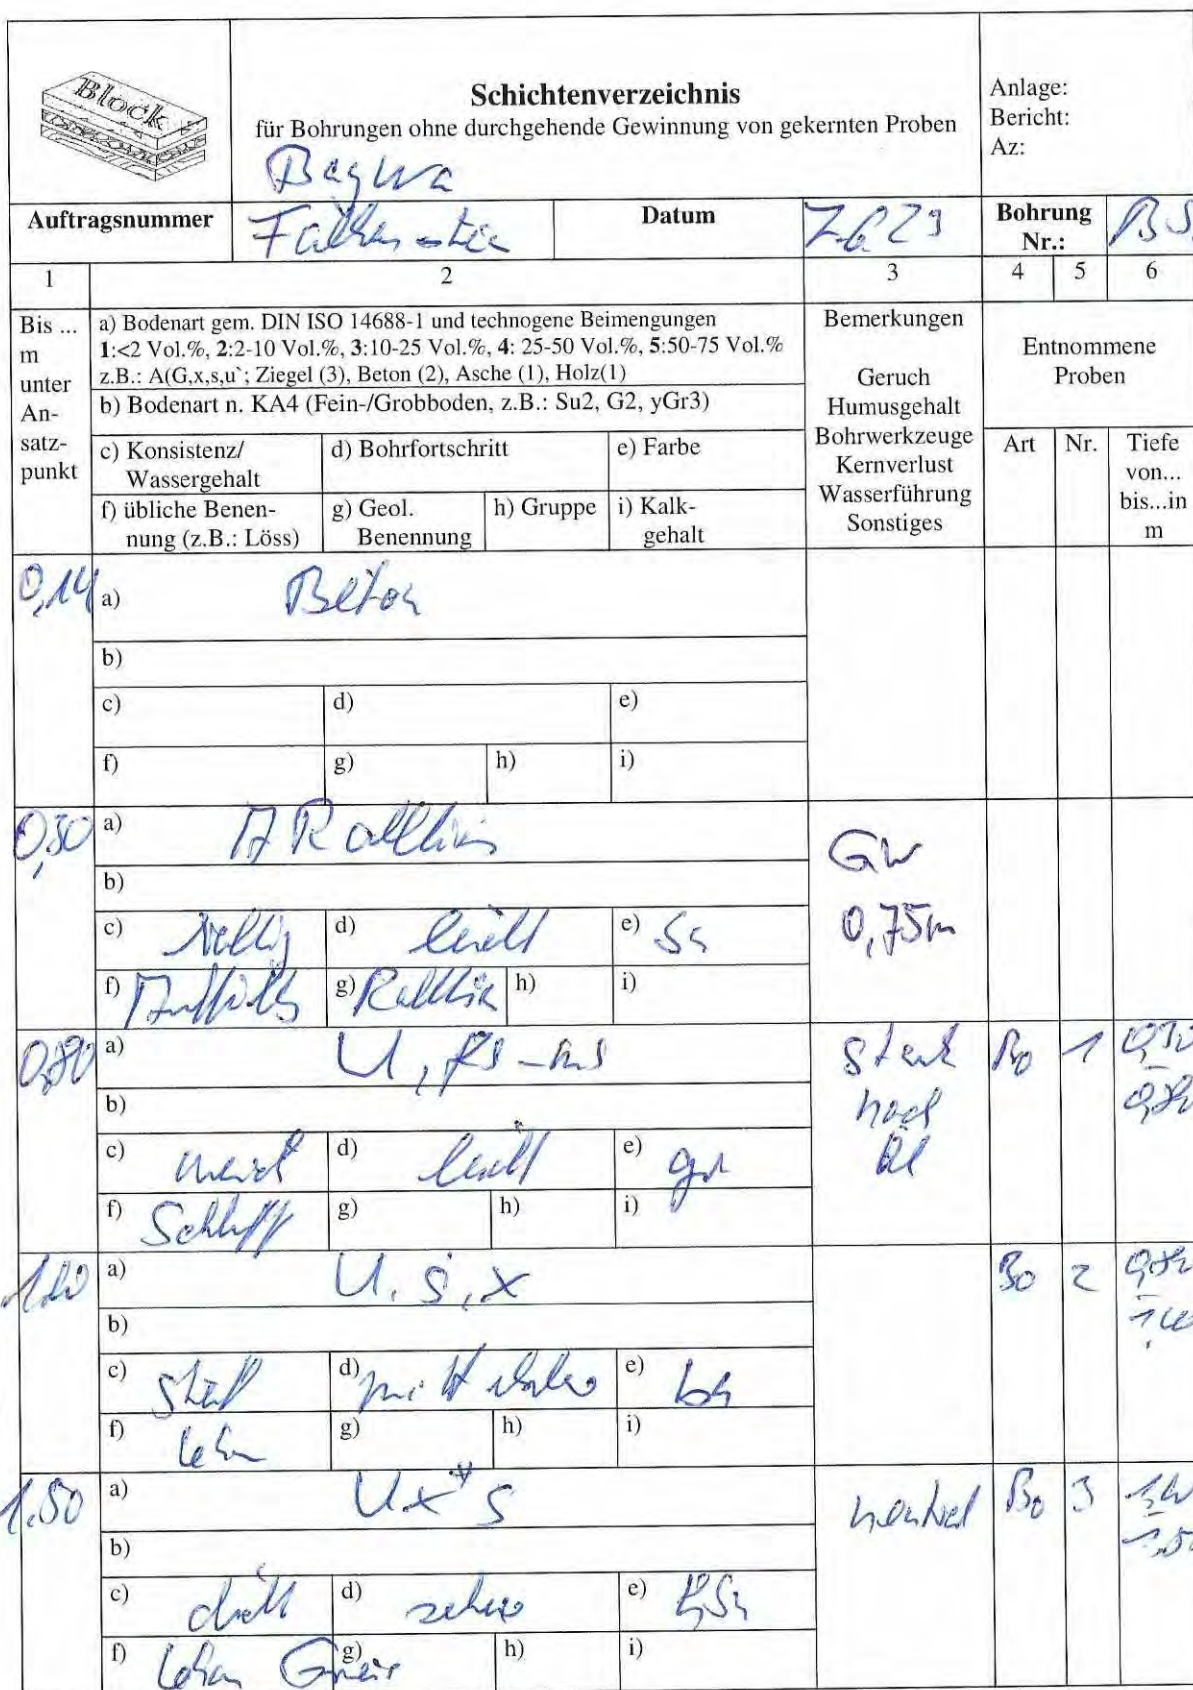 Block
Schichtenverzeichnis
für Bohrungen ohne durchgehende Gewinnung von gekernten Proben
Anlage:
Bericht:
Az:
Auftragsnummer
Datum
Bohrung
Nr.:
1 2 3 4 5 6
Bis ...
m
unter
An-
satz-
punkt
a) Bodenart gem. DIN ISO 14688-1 und technogene Beimengungen
1:<2 Vol.%, 2:2-10 Vol.%, 3:10-25 Vol.%, 4: 25-50 Vol.%, 5:50-75 Vol.%
z.B.: A(G,x,s,u`; Ziegel (3), Beton (2), Asche (1), Holz(1)
b) Bodenart n. KA4 (Fein-/Grobboden, z.B.: Su2, G2, yGr3)
c) Konsistenz/
Wassergehalt
d) Bohrfortschritt
e) Farbe
f) übliche Benen-
nung (z.B.: Löss)
g) Geol.
Benennung
h) Gruppe
i) Kalk-
gehalt
Bemerkungen
Geruch
Humusgehalt
Bohrwerkzeuge
Kernverlust
Wasserführung
Sonstiges
Entnommene
Proben
Art
Nr.
Tiefe
von...
bis...in
m
0,14
a) Beton
b)
c) d) e)
f) g) h) i)
a) A
b)
c) d) leicht e)
f) g) h) i)
GW
0,75m
0,80
a) U, fs-ms
b)
c) weich d) leicht e) gr
f) Schluff g) h) i)
stark
nach
Öl
Bo 1
a) U, s, x
b)
c) steif d) e) bn
f) Lehm g) h) i)
Bo 2
1,50
a) U x* s
b)
c) d) schwer e)
f) Lehm Gneis g) h) i)
neutral
Bo 3